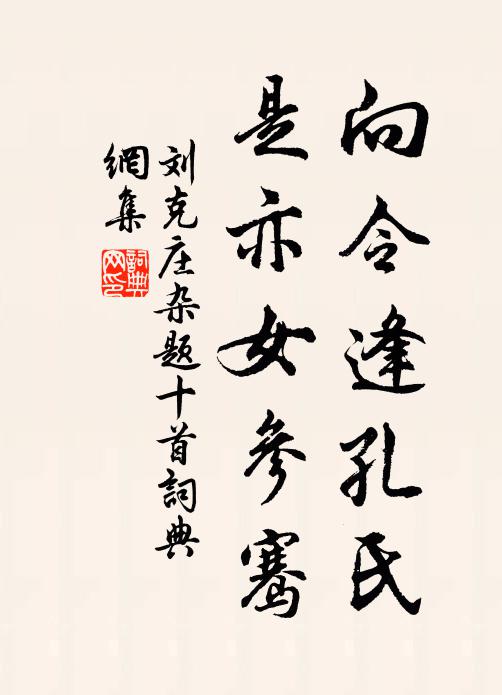 向令逢孔氏
是亦女參骞
刘克庄杂题十首詞典
網集
詞典
网印